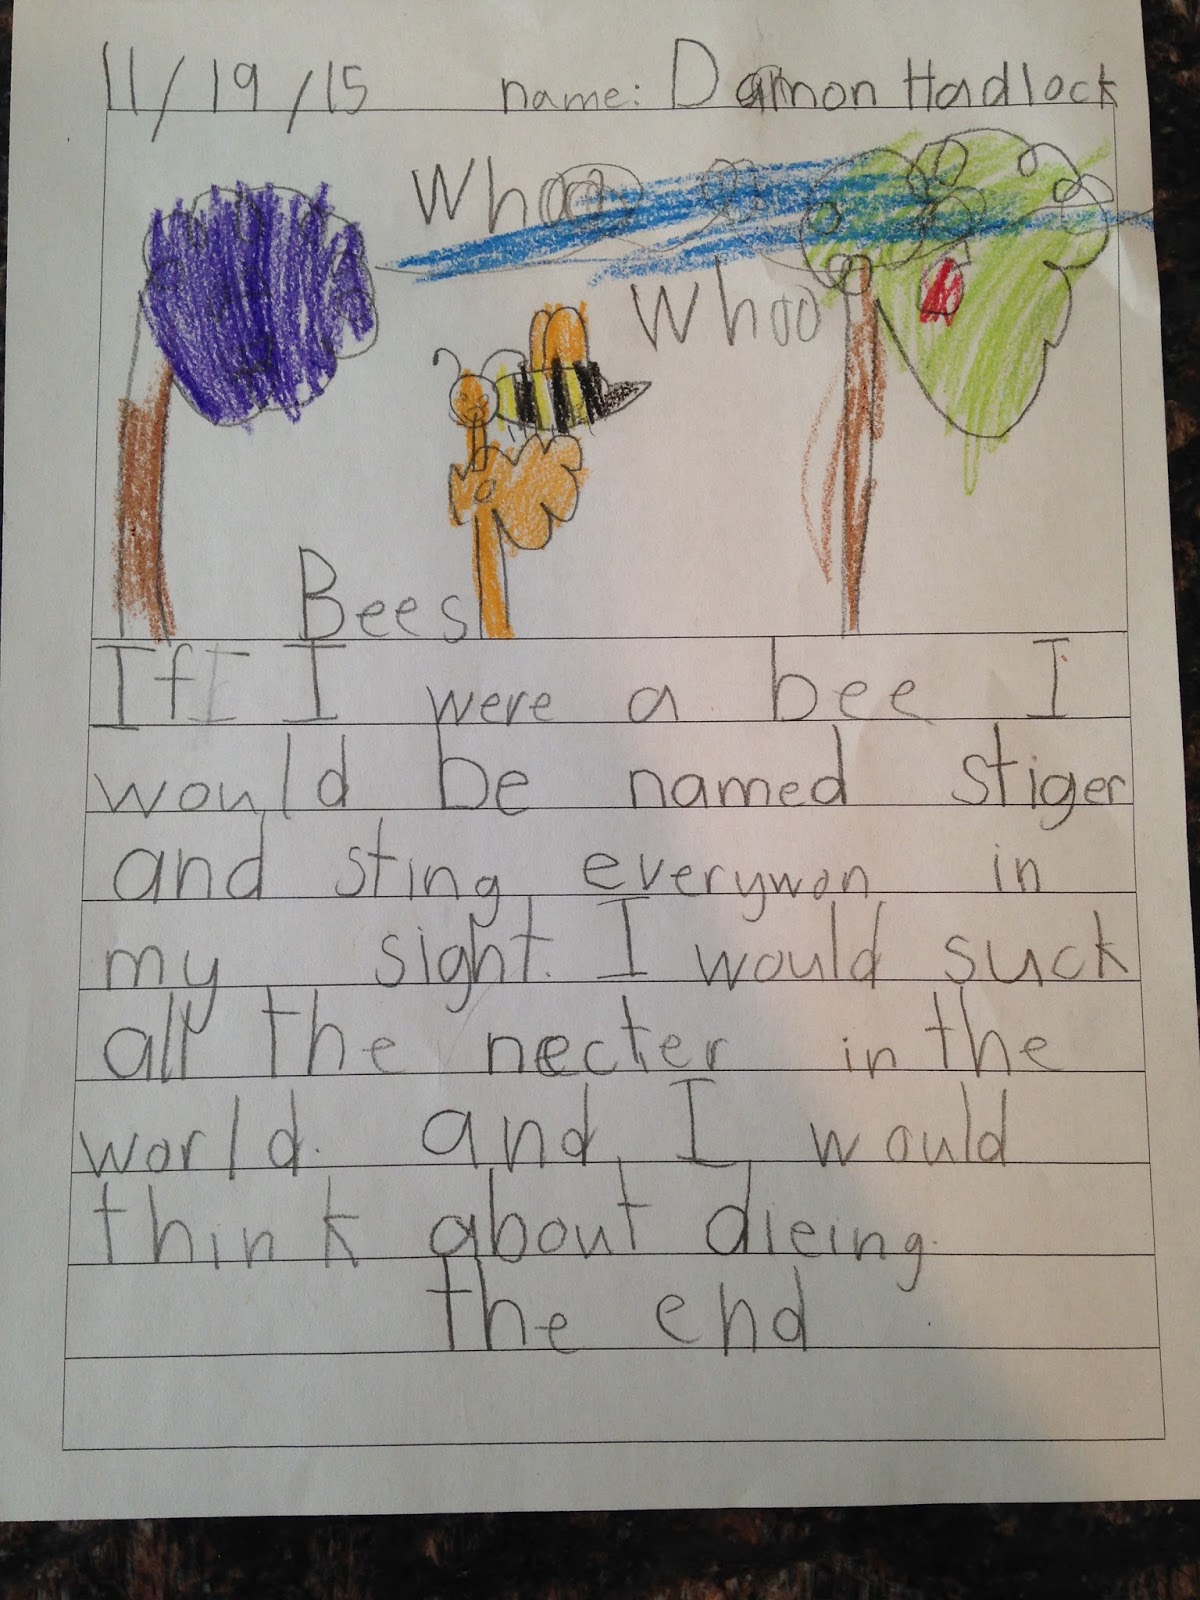 11/19/15 name: Damon Hadlock
Whooo
Whoo
Bees
If I were a bee I
would be named stiger
and sting everywon in
my sight. I would suck
all the necter in the
world. and I would
think about dieing.
the end